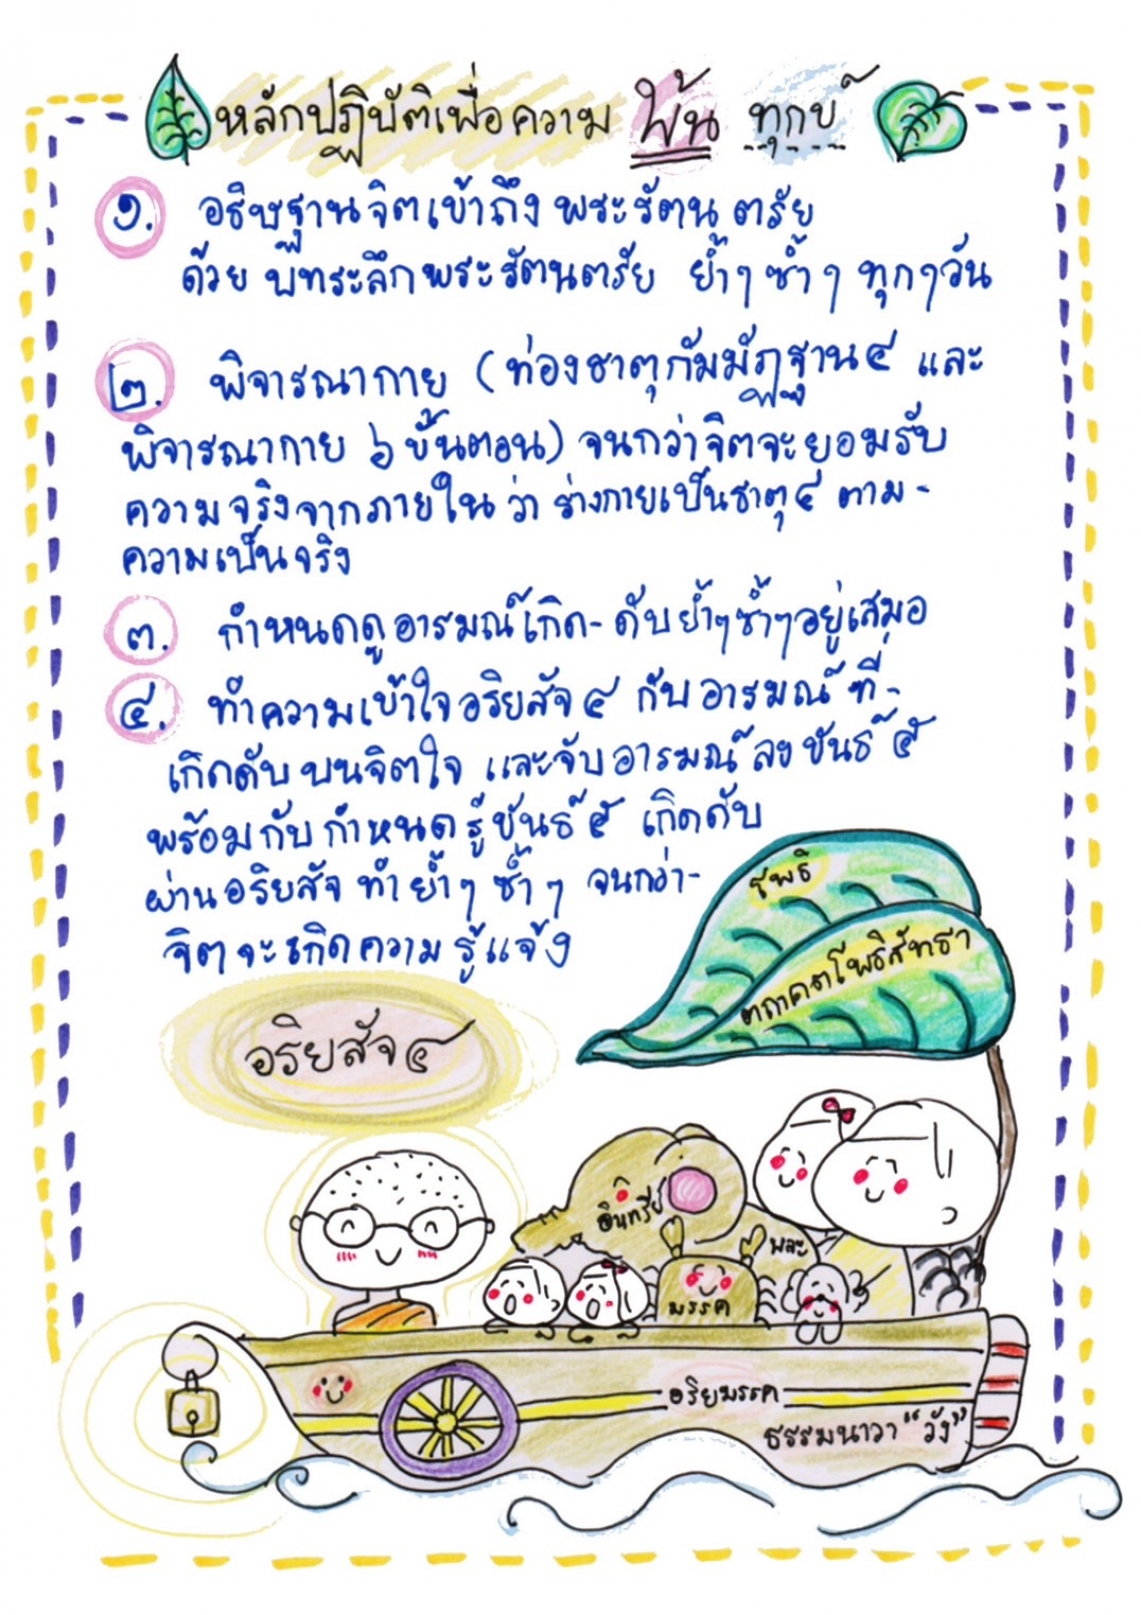 หลักปฏิบัติเพื่อความ พ้น ทุกข์
๑. อธิษฐานจิตเข้าถึง พระรัตนตรัย
ด้วย พิทระลึกพระรัตนตรัย ย้ำๆ ซ้ำๆ ทุกๆวัน
๒. พิจารณากาย (ท่องธาตุกัมมัฏฐาน๔ และ
พิจารณากาย ๖ ขั้นตอน) จนกว่าจิตจะยอมรับ
ความจริงจากภายใน ว่า ร่างกายเป็นธาตุ๔ ตาม-
ความเป็นจริง
๓. กำหนดดูอารมณ์เกิด-ดับย้ำๆซ้ำๆอยู่เสมอ
๔. ทำความเข้าใจอริยสัจ๔ กับอารมณ์ ที่-
เกิดดับ บนจิตใจ และจับอารมณ์ ลงขันธ์ ๕
พร้อมกับ กำหนดรู้ขันธ์ ๕ เกิดดับ
ผ่านอริยสัจ ทำ ย้ำๆ ซ้ำๆ จนกว่า-
จิตจะเกิดความรู้แจ้ง
โพธิ
ตถาคตโพธิสัทธา
อริยสัจ๔
อินทรีย์
พละ
มรรค
อริยมรรค
ธรรมนาวา "วัง"